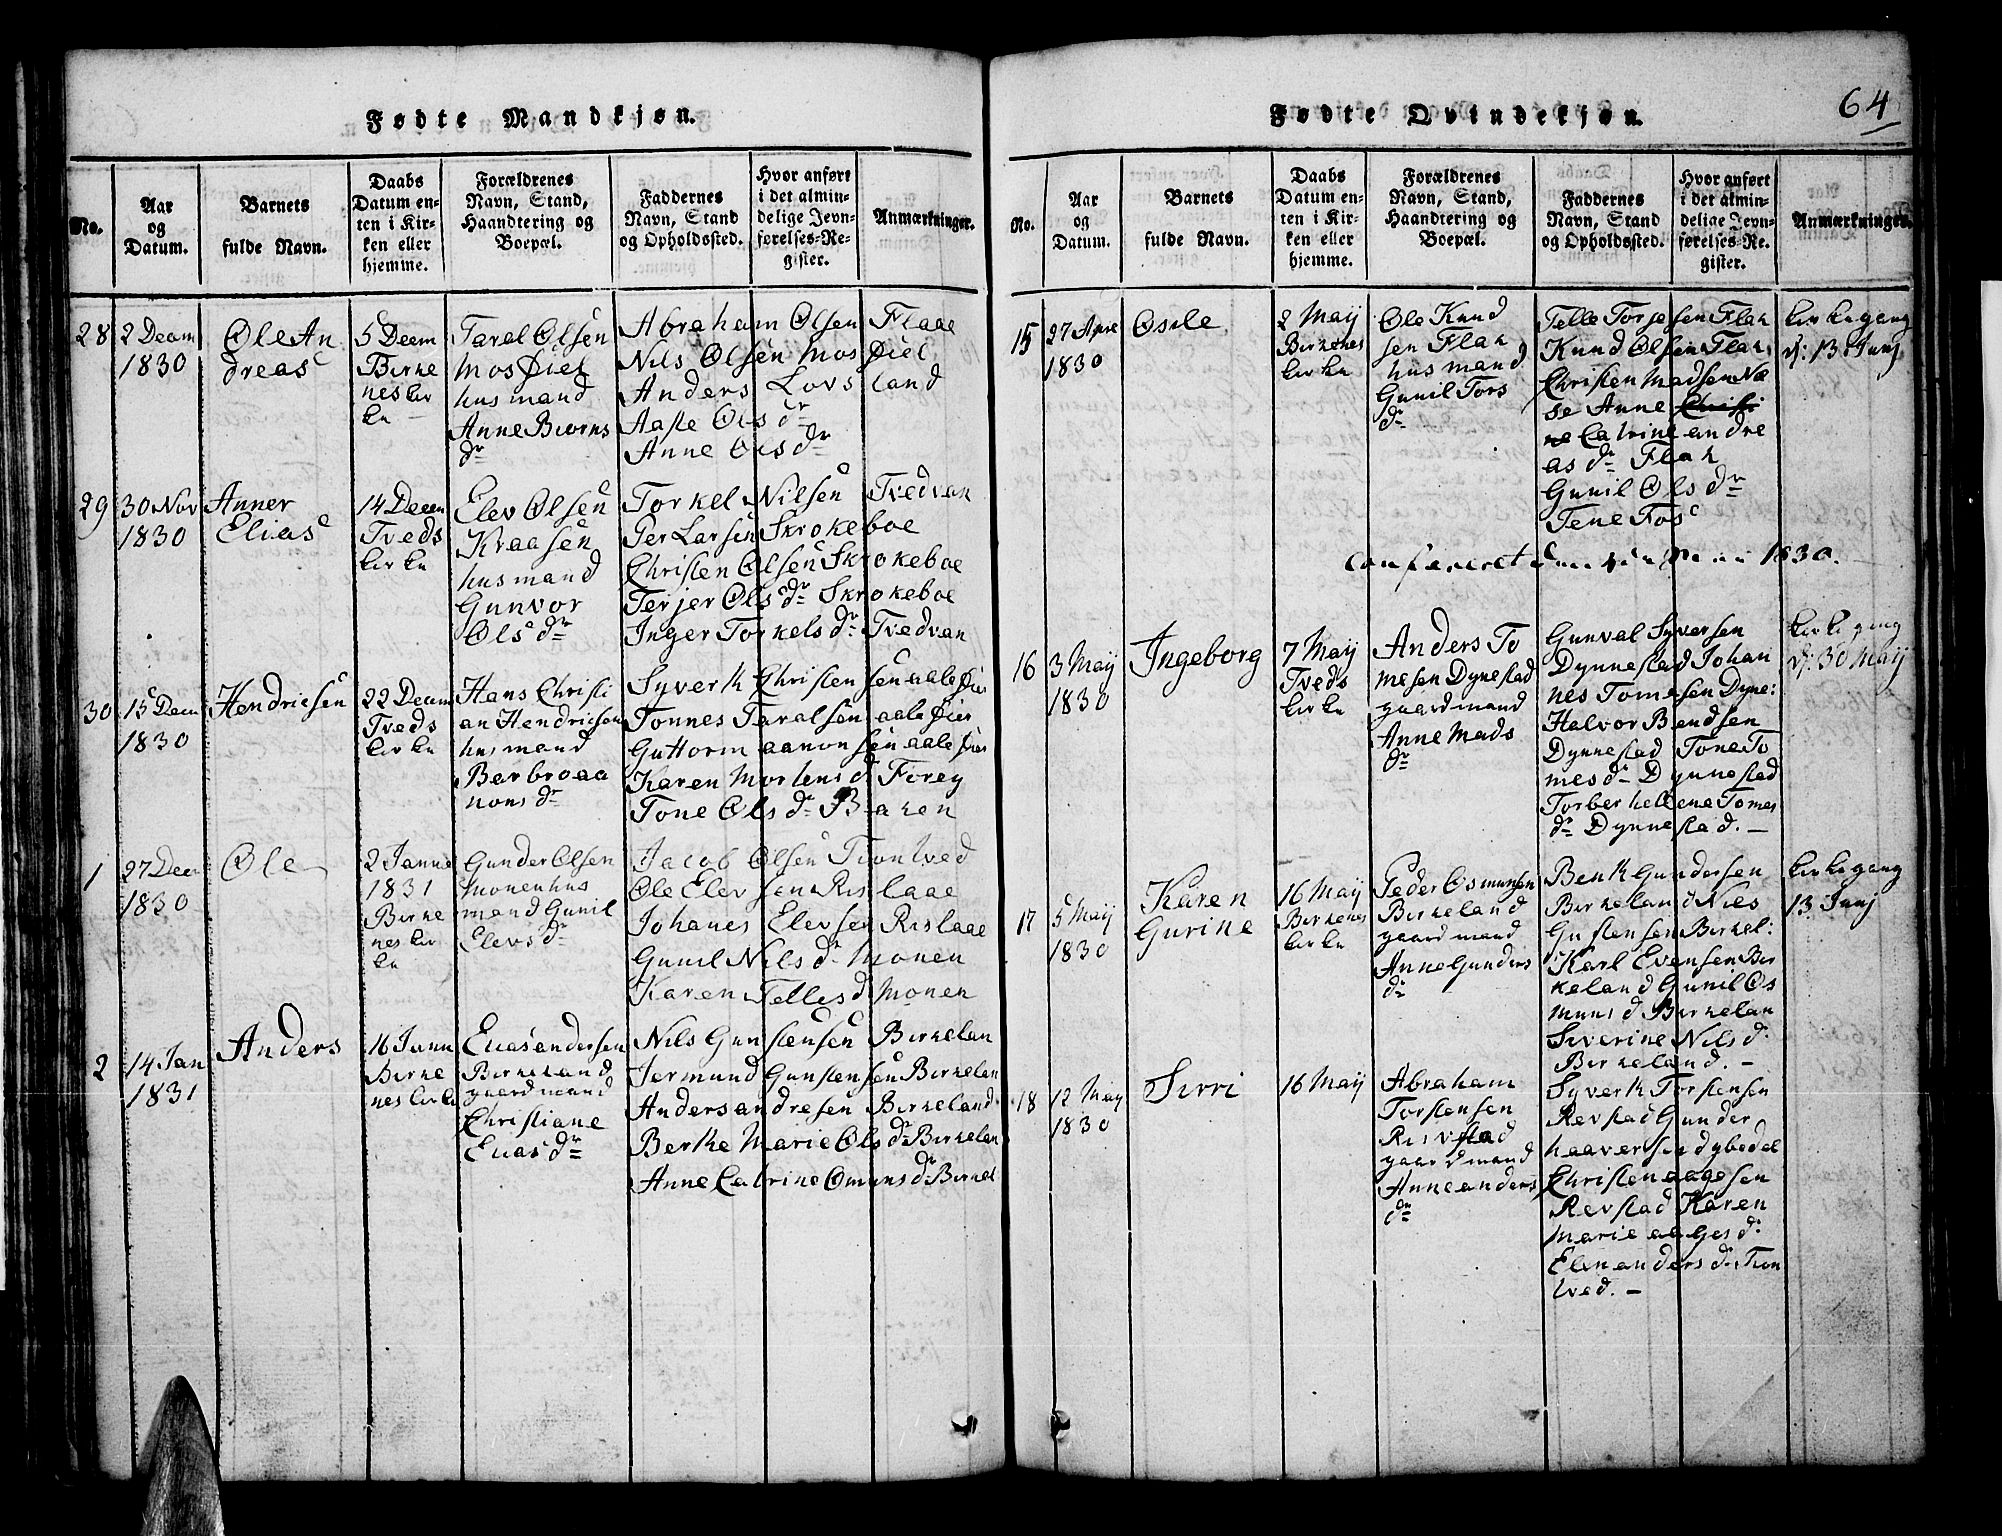 Fødte Mandkjøn.
No.
Aar
og
Datum.
Barnets
fulde Navn.
Daabs
Datum en-
ten i Kir-
ken eller
hjemme.
Forældrenes
Navn, Stand,
Haandtering og
Boepæl.
Faddernes
Navn, Stand
og Opholdssted.
Hvor anført
i det almin-
delige Jevn-
førelses-Re-
gister.
Anmærkninger.
28
2 Decm
1830
Ole An
dreas
5 Decm
Birke
nes kir
ke
Tarel Olsen
Mos Øiel
husmand
Anne Biørns
dr
Abraham Olsen Flaae
Nils Olsen Mos Øiel
Anders Lovsland
Aaste Ols dr
Anne Ols dr
29
30 Nov
1830
Anner
Elias
14 Decem
Tveds
kirke
Elev Olsen
Kraasen
husmand
Gunvor
Ols dr
Torkel Nilsen Tvedvan
Per Larsen Skrokeboe
Christen Olsen Skrokeboe
Terjer Ols dr Skrokeboe
Inger Torkels dr Tvedvan
30
15 Decm
1830
Hendricsen
22 Decem
Tveds
kirke
Hans Christi
an Hendricsen
husmand
Berbro aa
nons dr
Syverk Christensen aale Øier
Tonnes Taralsen aale Øier
Guttorm aanonsen aale Øier
Karen Mortens d Forey
Tone Ols dr Baken
1
27 Decm
1830
Ole
2 Janu
1831
Birke
nes kir
ke
Gunder Olsen
Monen hus
mand Gunil
Elevs dr
Jacob Olsen Trontved
Ole Elevsen Rislaae
Johanes Elevsen Rislaae
Gunil Nils dr Monen
Karen Telles d Monen
2
14 Jan
1831
Anders
16 Janu
Birke
nes kirke
Elias andersen
Birkeland
gaardmand
Christiane
Elias dr
Nils Gunstensen Birkelan
Jermund Gunstensen Birkelan
Anders andresen Birkeland
Berthe Marie Ols dr Birkelan
Anne Catrine Omuns dr Birkel
Fødte Qvindekjøn.
64
No.
Aar
og
Datum.
Barnets
fulde Navn.
Daabs
Datum en-
ten i Kir-
ken eller
hjemme.
Forældrenes
Navn, Stand,
Haandtering og
Boepæl.
Faddernes
Navn, Stand
og Opholdssted.
Hvor anført
i det almin-
delige Jevn-
førelses-Re-
gister.
Anmærkninger.
15
27 Aprl
1830
Osile
2 Maij
Birkenes
kirke
Ole Knud
sen Flak
husmand
Gunil Tors
dr
Telle Torjesen Flak
Knud Olsen Flak
Christen Madsen Næ
se Anne Christi
ne Catrine andre
as dr Flak
Gunil Ols dr
Tene Fos
kirkegang
d: 13 Junj
1830.
16
3 Maij
1830
Ingeborg
7 Maij
Tveds
kirke
Anders To
mesen Dynestad
gaardmand
Anne Mads
dr
Gunval Syversen
Dynnestad Johan
nes Tomesen Dyne:
Halvor Bendsen
Dynnestad Tone To
mes dr Dynnestad
Torber hellene Tomes
dr Dynnestad. —
kirkegang
d: 30 Maij
17
5 Maij
1830
Karen
Gurine
16 Maij
Birkenes
kirke
Peder Osmunsen
Birkeland
gaardmand
Anne Gunders
dr
Benk Gundersen
Birkeland Niels
Gustensen Birkel:
Karl Evensen Bir
keland Gunil Os
muns d Birkelan
Siverine Nils d.
Birkeland. —
kirkegang
13 Junj
18
12 Maij
1830
Sirri
16 Maij
Abraham
Torstensen
Risvstad
gaardmand
Anne anders
dr
Syverk Torstensen
Revstad Gunder
haaversen dybedal
Christen aagesen
Revstad Karen
Marie aages d:
Elen anders d: Tron
tved. —